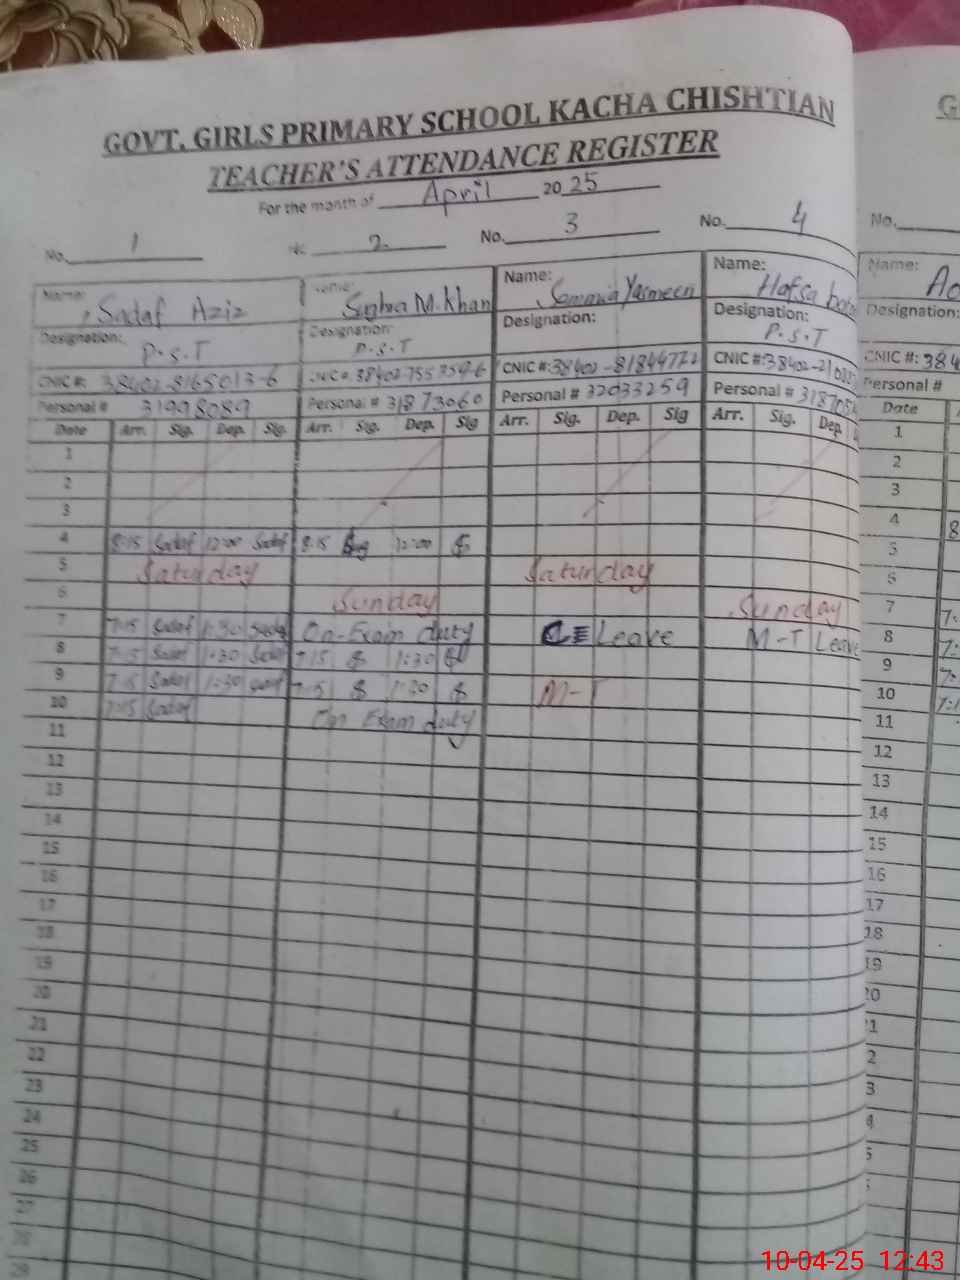 GOVT. GIRLS PRIMARY SCHOOL KACHA CHISHTIAN
TEACHER'S ATTENDANCE REGISTER
For the month of April 2025
No. 1 No. 2 No. 3 No. 4 No.
Name: Sadaf Aziz Name: M. Khan Name: Yasmeen Name: Hafsa Name:
Designation: P.S.T Designation: P.S.T Designation: Designation: P.S.T Designation:
CNIC #: 38402-8165013-6 CNIC #: 38402- CNIC #: 38402-81844772 CNIC #: 38402-21 CNIC #: 384
Personal # 31998089 Personal # 31873060 Personal # 32033259 Personal # 31870 Personal #
Date Arr. Sig. Dep. Sig. Arr. Sig. Dep. Sig Arr. Sig. Dep. Sig Arr. Sig. Dep. Date
1 1
2 2
3 3
4 8:15 Sadaf 12:00 Sadaf 8:15 12:00 4 8
5 Saturday Saturday 5
6 Sunday Sunday 6
7 7:15 Sadaf 1:30 Sadaf On-Exam duty Leave M-T Leave 7
8 7:15 Sadaf 1:30 Sadaf 7:15 1:30 8
9 7:15 Sadaf 1:30 Sadaf 7:15 1:30 M-T 9
10 7:15 Sadaf On Exam duty 10
11 11
12 12
13 13
14 14
15 15
16 16
17 17
18 18
19 19
20 20
21
22
23
24
25
26
27
28
29
10-04-25 12:43